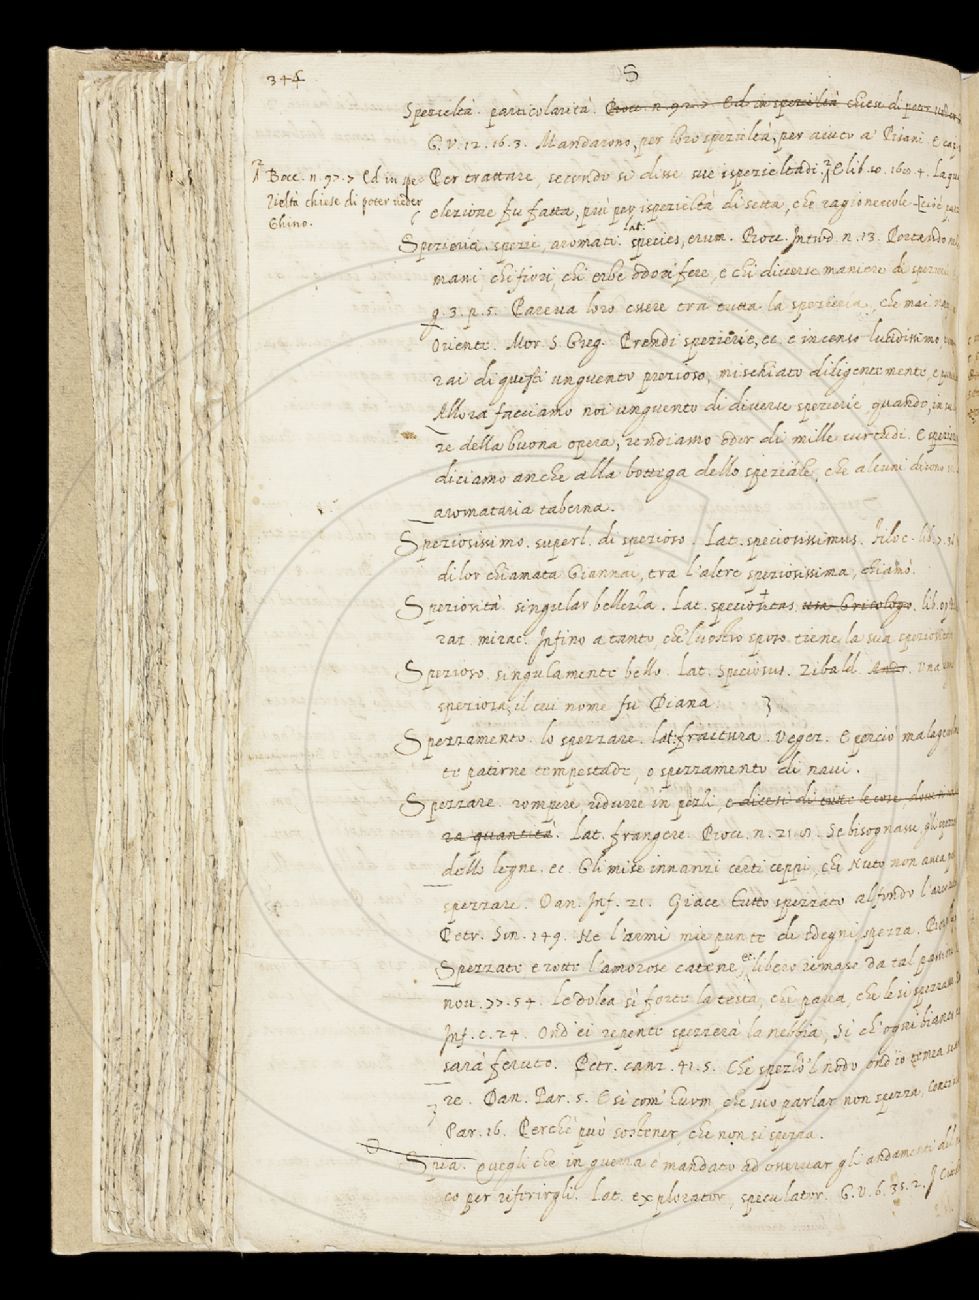 344
S
Spezieltà. particolarità. Bocc. n. 97. 7 Ed in spezieltà chiese di poter veder
G. V. 12. 16. 3. Mandarono, per loro spezieltà, per aiuto a' Pisani. E cap.
Bocc. n. 97. 7 Ed in spe-
zieltà chiese di poter veder
Ghino.
Per trattare, secondo si disse sue ispezieltadi. E lib. 10. 160. 4. La qu
elezione fu fatta, più per ispezieltà di setta, che ragionevole
Spezieria. spezie, aromati. lat. species, erum. Bocc. Introd. n. 13. Portando nel
mani chi fiori, chi erbe odorifere, e chi diverse maniere di spezie
g. 3. p. 5. Pareva loro essere tra tutta la spezieria, che mai nac
Oriente. Mor. S. Greg. Prendi spezierie, ec. e incenso lucidissimo,
rai di questi unguento prezioso, mischiato diligentemente, e
Allora facciamo noi unguento di diverse spezierie, quando, in
re della buona opera, rendiamo odor di mille virtudi. E spezieri
diciamo anche alla bottega dello speziale, che alcuni dicono
aromataria taberna.
Speziosissimo. superl. di spezioso. Lat. speciosissimus. Filoc. lib. 7.
di lor chiamata Giannai, tra l'altre speziosissima, chiamò.
Speziosità. singular bellezza. Lat. speciositas. usa Grisologo. lib. op
rat. mirac. Infino a tanto, che 'l vostro sposo tiene la sua speziosità
Spezioso. singularmente bello. Lat. speciosus. Zibald. Andr. Una
speziosa, il cui nome fu Diana
Spezzamento. lo spezzare. lat. fractura. Veger. E perciò malagevolme
te patirne tempestade, o spezzamento di navi.
Spezzare. rompere, ridurre in pezzi, e dicesi di tutte le cose,
ra quantità. Lat. frangere. Bocc. n. 21. 8. Se bisognasse, gli spezz
delle legne. ec. Gli mise innanzi certi ceppi, che Nuto non avea po
spezzare. Dan. Inf. 21. Giace tutto spezzato al fondo l'arco
Petr. Son. 149. Ne l'armi mie punte di sdegni spezza.
Spezzate e rotte l'amorose catene, et libero rimaso da tal passione
nov. 77. 54. Le dolea sì forte la testa, che parea, che le si spezzasse
Inf. c. 24. Ond' ei repente spezzerà la nebbia, Sì ch' ogni bianco
sarà feruto. Petr. canz. 41. 5. Che spezzò 'l nodo, ond' io temea
re. Dan. Par. 5. E sì com' huom, che suo parlar non spezza,
Par. 16. Perchè può sostener, che non si spezza.
Spia. Quegli che in guerra è mandato ad osservar gli andamenti del
co per riferirgli. Lat. explorator, speculator. G. V. 6. 35. 2.